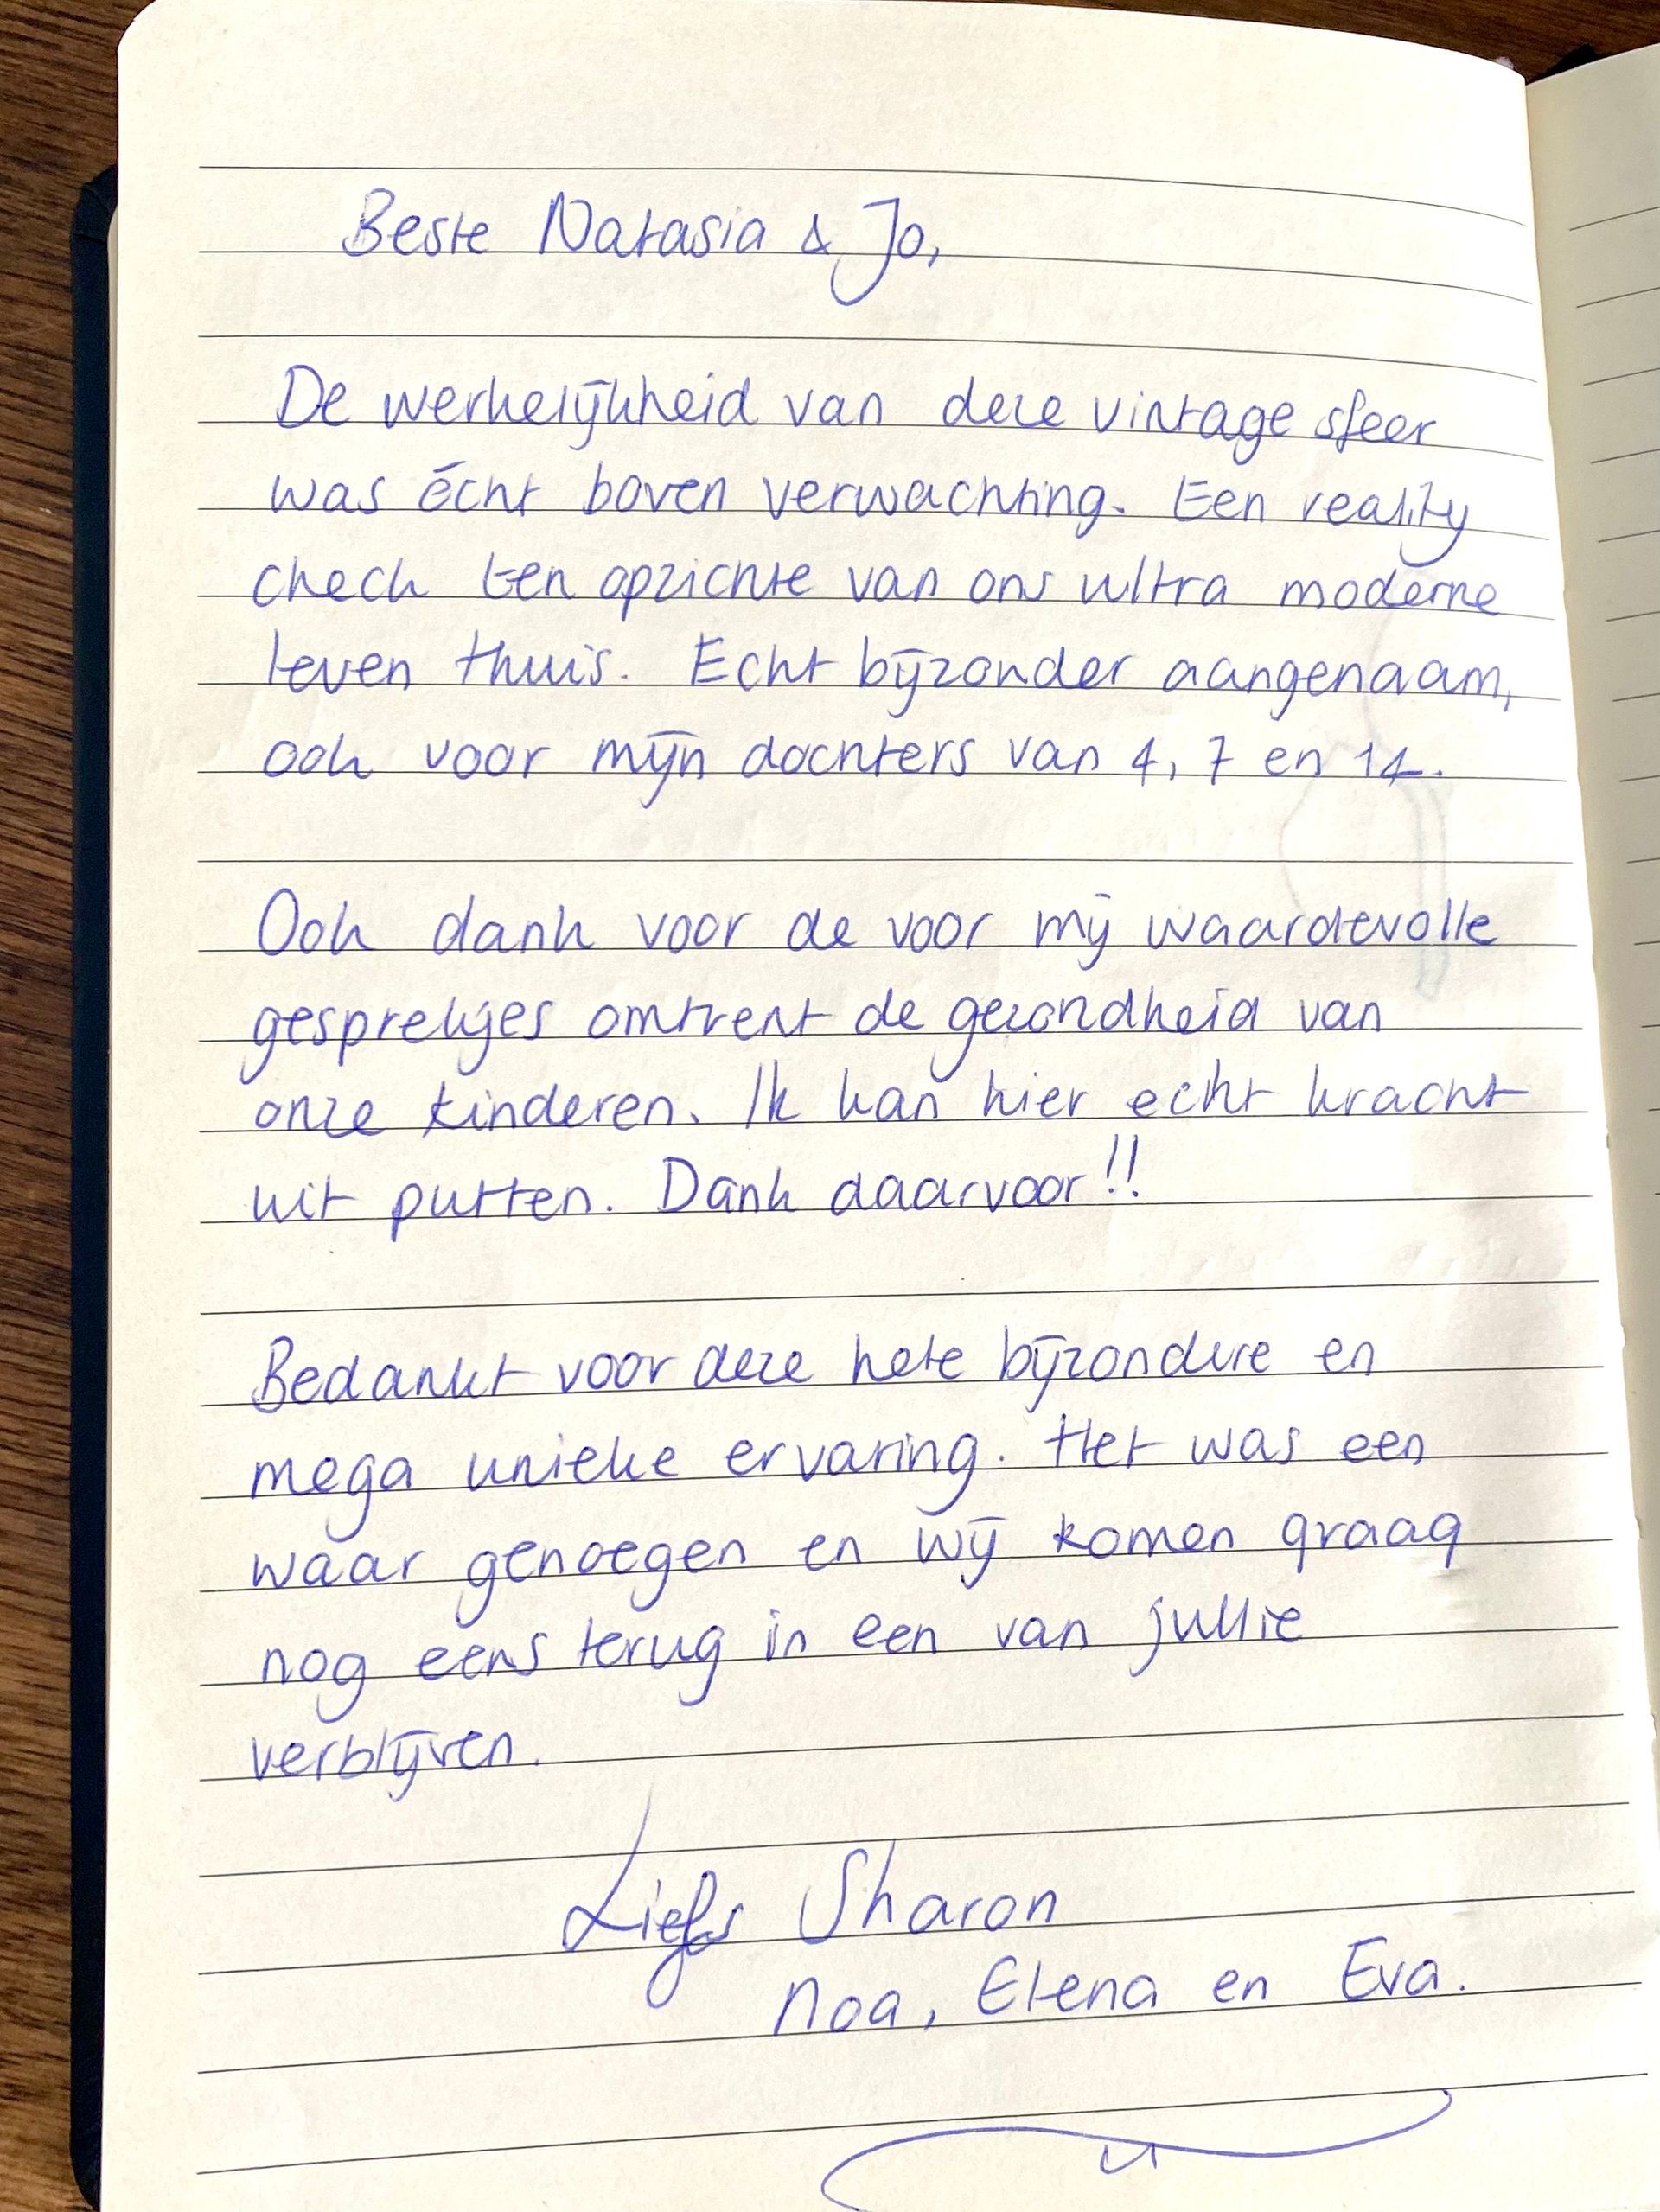 Beste Natasia & Jo,
De werkelijkheid van deze vintage sfeer
was écht boven verwachting. Een reality
check ten opzichte van ons ultra moderne
leven thuis. Echt bijzonder aangenaam,
ook voor mijn dochters van 4, 7 en 14.
Ook dank voor de voor mij waardevolle
gesprekjes omtrent de gezondheid van
onze kinderen. Ik kan hier echt kracht
uit putten. Dank daarvoor!!
Bedankt voor deze hele bijzondere en
mega unieke ervaring. Het was een
waar genoegen en wij komen graag
nog eens terug in een van jullie
verblijven.
Liefs Sharon
Noa, Elena en Eva.